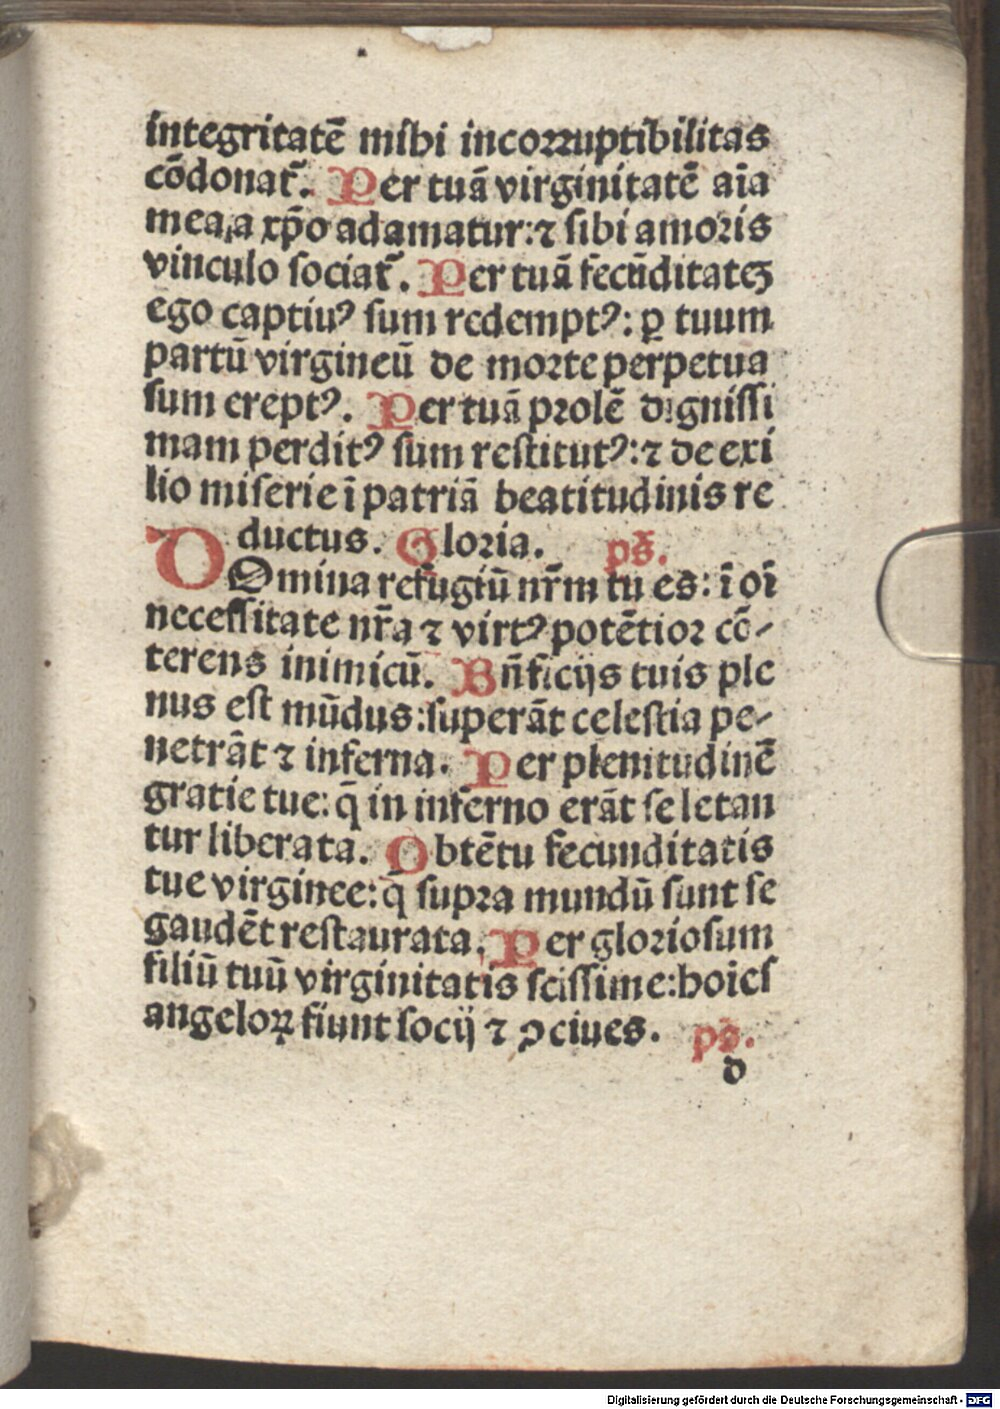 integritatē mihi incorruptibilitas
cōdonat᷑. Per tuā virginitatē aīa
mea a xp̄o adamatur: ⁊ sibi amoris
vinculo sociat᷑. Per tuā fecūditateꝫ
ego captiuꝰ sum redemptꝰ: ꝑ tuum
partū virgineū de morte perpetua
sum ereptꝰ. Per tuā prolē digniſſi
mam perditꝰ sum reſtitutꝰ: ⁊ de exi
lio miserie ī patriā beatitudinis re
ductus. Gloria. ps̄.
DOmina refugiū nr̄m tu es: ī oī
neceſſitate nr̄a ⁊ virtꝰ potētior cō-
terens inimicū. Bn̄ficijs tuis ple
nus eſt mūdus: superāt celeſtia pe-
netrāt ⁊ inferna. Per plenitudinē
gratie tue: q̄ in inferno erāt se letan
tur liberata. Obtētu fecunditatis
tue virginee: q̄ supra mundū sunt se
gaudēt reſtaurata. Per gloriosum
filiū tuū virginitatis sciſſime: hoīeſ
angeloꝝ fiunt socij ⁊ ꝯciues. ps̄.
d
Digitalisierung gefördert durch die Deutsche Forschungsgemeinschaft - DFG